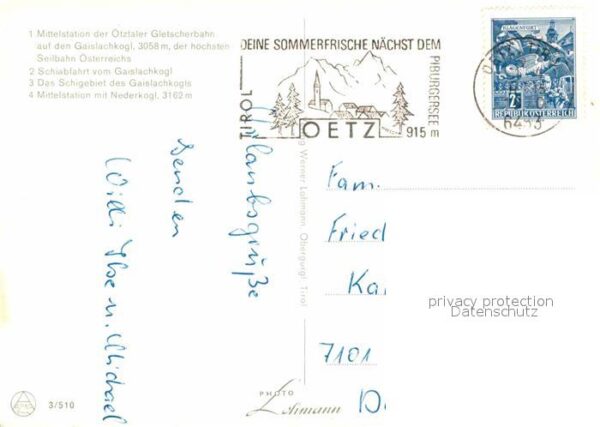 1 Mittelstation der Ötztaler Gletscherbahn
auf den Gaislachkogl, 3058 m, der höchsten
Seilbahn Österreichs
2 Schiabfahrt vom Gaislachkogl
3 Das Schigebiet des Gaislachkogls
4 Mittelstation mit Nederkogl, 3162 m
DEINE SOMMERFRISCHE NÄCHST DEM
PIBURGERSEE
TIROL
OETZ
915 m
KLAGENFURT
2S
REPUBLIK ÖSTERREICH
6433
Urlaubsgrüße
senden
Willi Ilse u. Michael
Werner Lohmann Obergurgl Tirol
Fam.
Fried
Ka.
7101
D.
privacy protection
Datenschutz
3/510
PHOTO
Lohmann